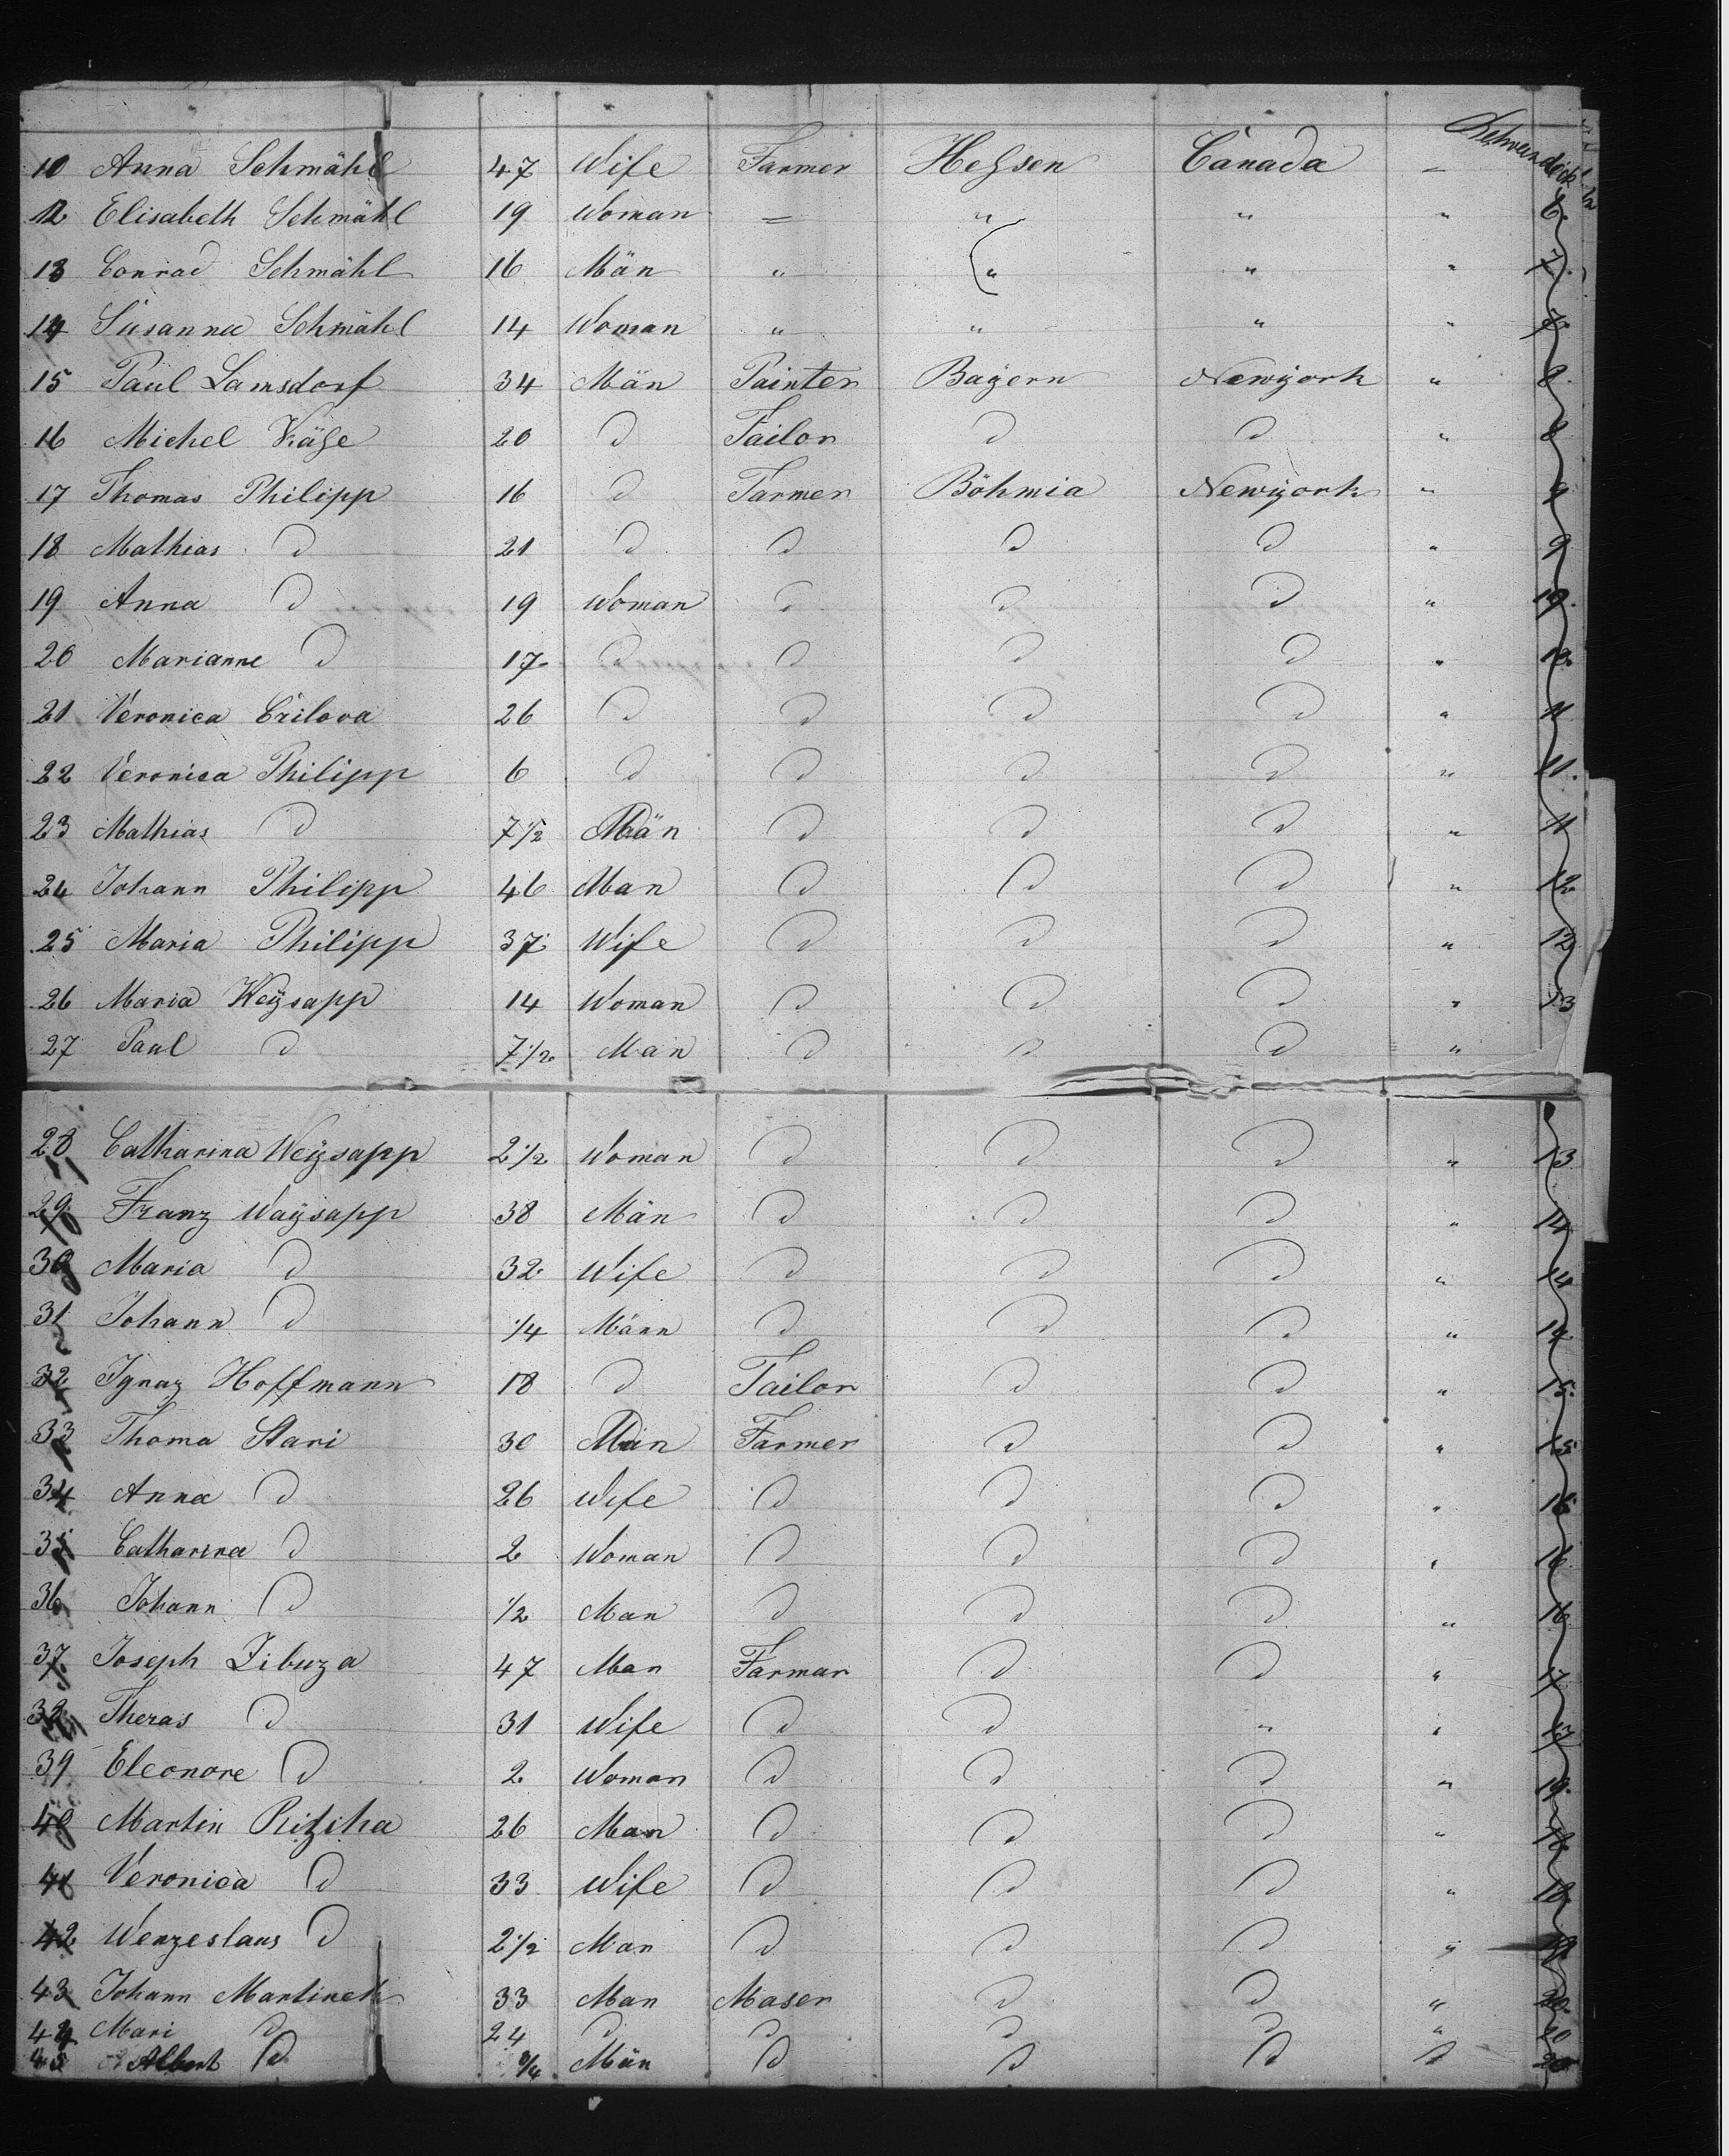 10 Anna Schmähl 47 Wife Farmer Heſsen Canada –
12 Elisabeth Schmähl 19 Woman = " " " 6
13 Conrad Schmähl 16 Män " " " " 7.
14 Susanna Schmähl 14 Woman " " " " 7
15 Paul Lamsdorf 34 Män Painter Bayern Newyork " 8.
16 Michel 20 d Tailor d d " 8
17 Thomas Philipp 16 d Farmer Böhmia Newyork " 9
18 Mathias d 21 d d d d " 9
19 Anna d 19 Woman d d d " 10.
20 Marianne d 17 d d d d " 10.
21 Veronica Crilova 26 d d d d " 11
22 Veronica Philipp 6 d d d d " 11.
23 Mathias d 7 1/2 Män d d d " 11
24 Johann Philipp 46 Man d d d " 12
25 Maria Philipp 37 Wife d d d " 12
26 Maria Weysapp 14 Woman d d d " 13
27 Paul d 7 1/2 Man d d d "
28 Catharina Weysapp 2 1/2 Woman d d d " 13
29 Franz Waysapp 38 Män d d d " 14
30 Maria d 32 Wife d d d " 14
31 Johann d 1/4 Männ d d d " 14
32 Ignaz Hoffmann 18 d Tailor d d " 15
33 Thoma Stari 30 Män Farmer d d " 15
34 Anna d 26 Wife d d d " 16
35 Catharina d 2 Woman d d d " 16
36 Johann d 1/2 Man d d d " 16
37 Joseph Zibuza 47 Man Farmar d d " 17
38 Theras d 31 Wife d d " " 17
39 Eleonore d 2 Woman d d d "
40 Martin 26 Man d d d " 18
41 Veronica d 33 Wife d d d " 18
42 Wenzeslaus d 2 1/2 Man d d d "
43 Johann Martineck 33 Man Maser d d " 20
44 Mari d 24 d d d d " 20
45 Albert d 3/4 Män d d d d 20